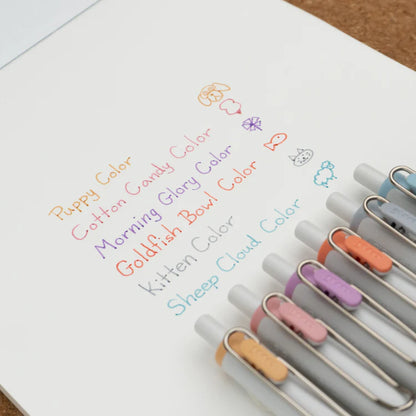 Puppy Color
Cotton Candy Color
Morning Glory Color
Goldfish Bowl Color
Kitten Color
Sheep Cloud Color